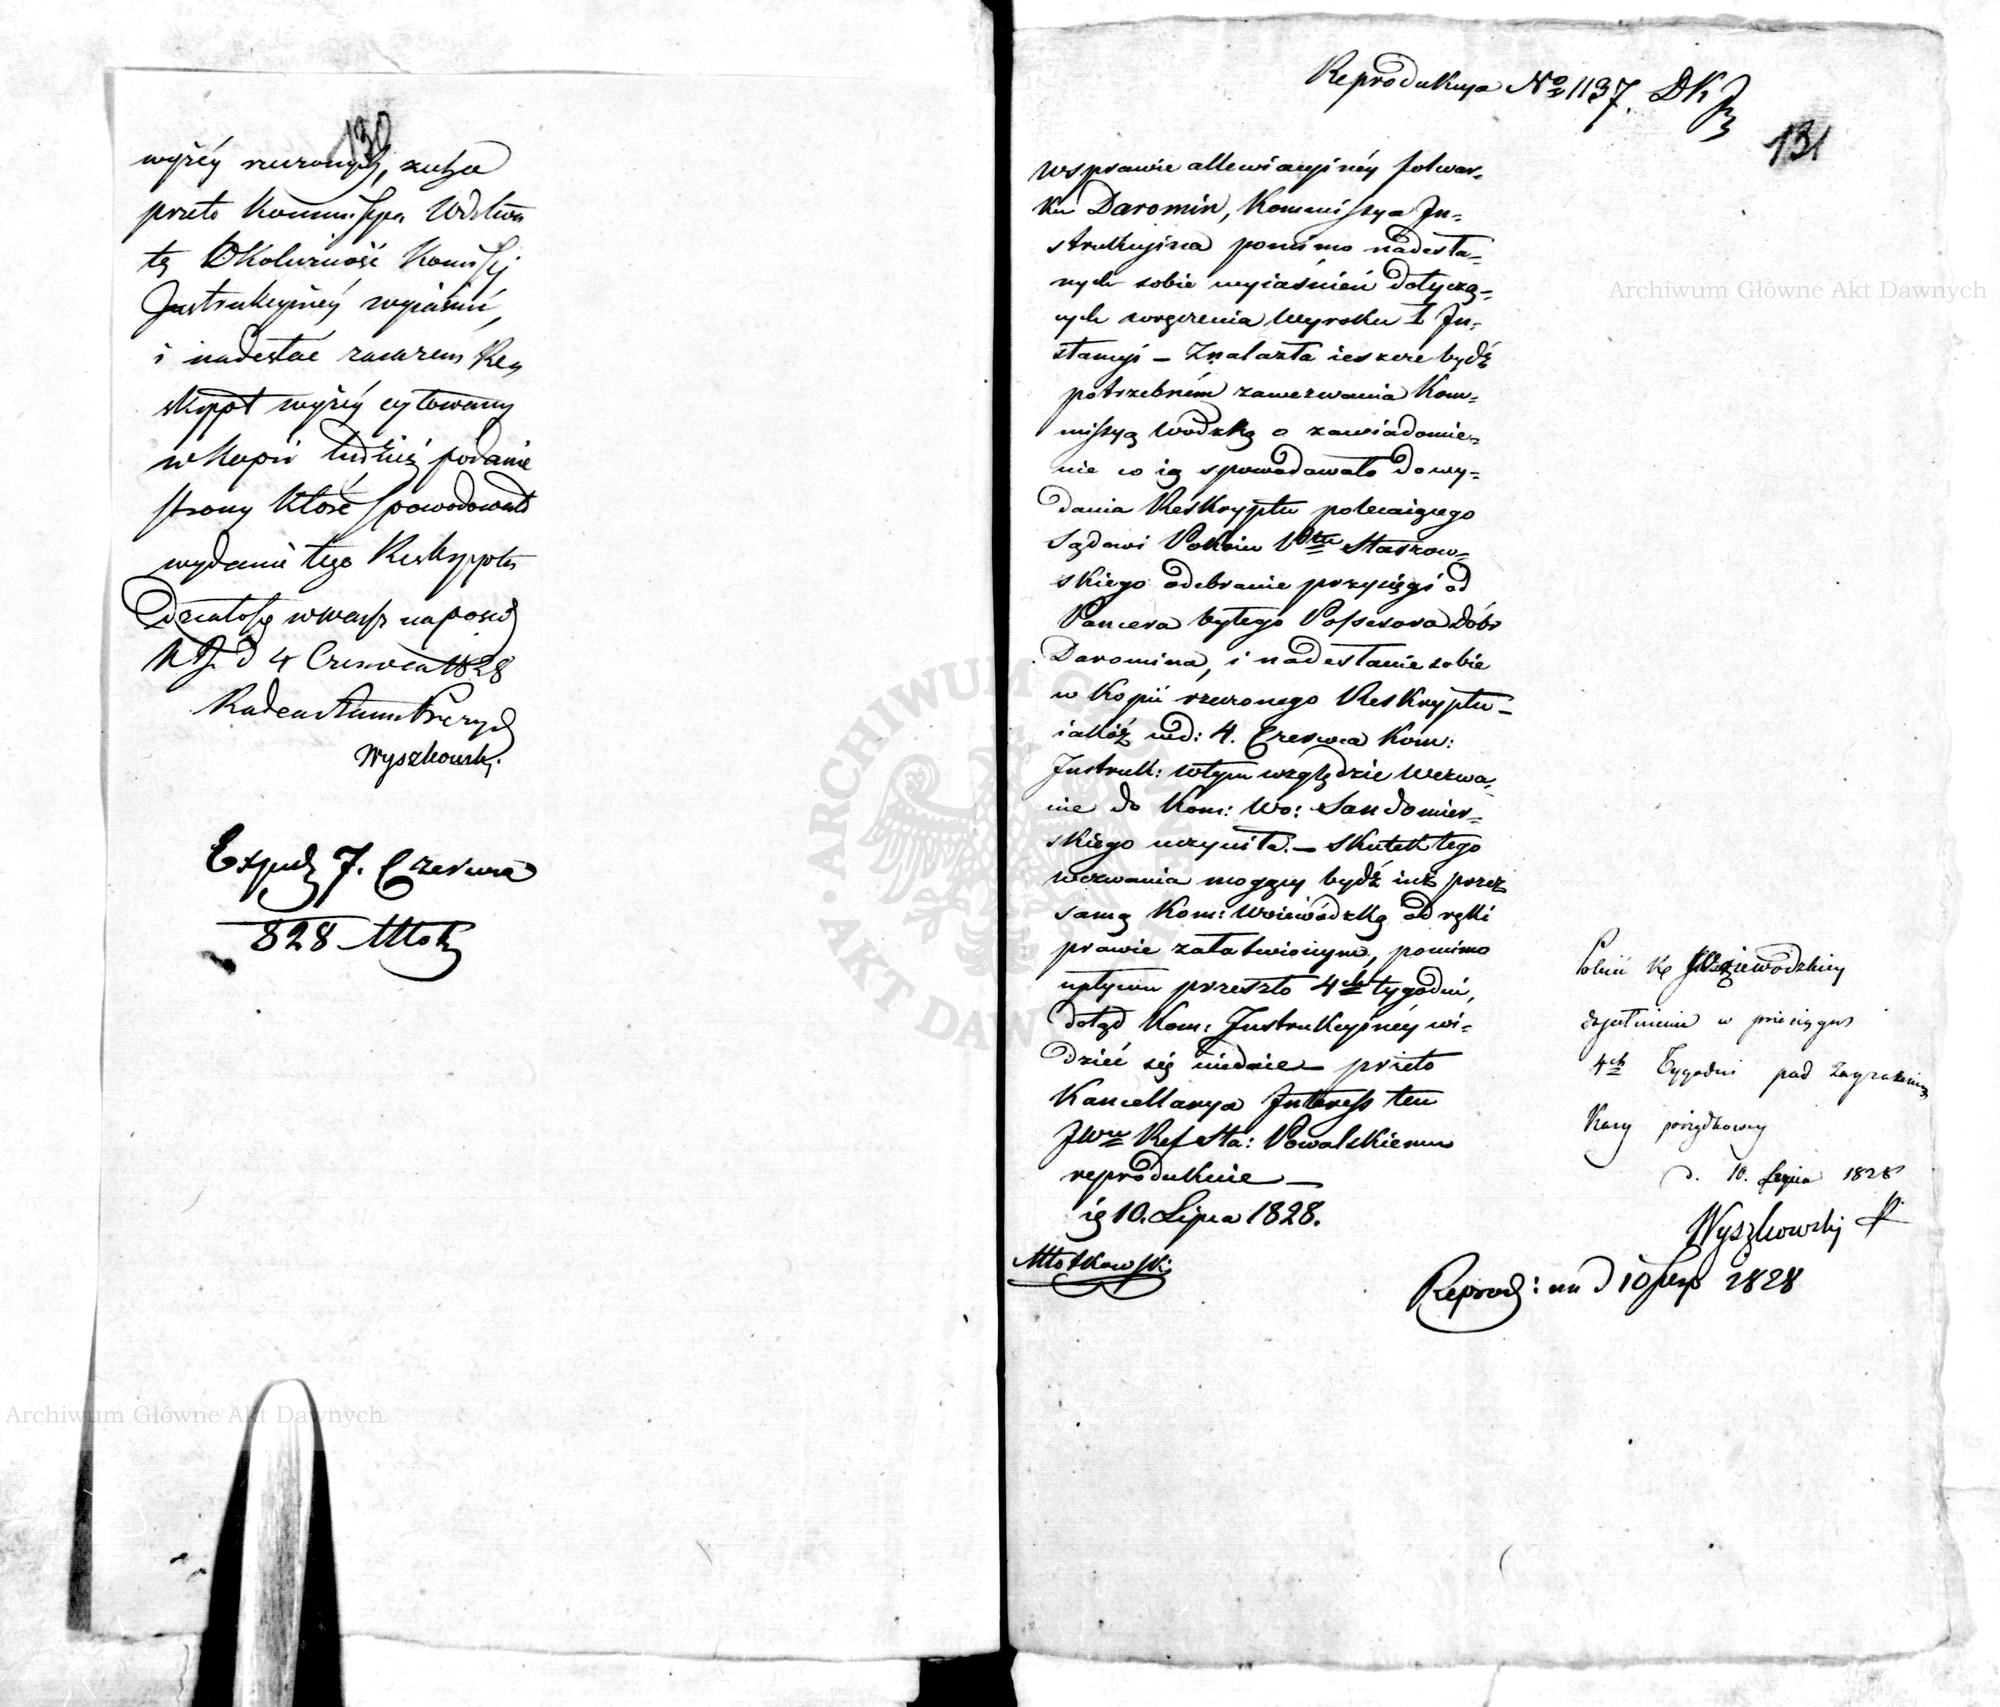 130
wyżéy rzeczonych, zechce
przeto Kommissya Wdztwa
tę Okoliczność Komissij
Instrukcyinéy wyiaśnić,
i nadesłać zarazem Re
skrypt wyżéy cytowany
w kopii tudzież podanie
strony które spowodowało
wydanie tego Reskryptu
Działo się w Warsz na posied
d 4 Czerwca 1828
Radca Stanu Prezyd
Wyszkowski.
Exped 7. Czerwca
828 Młotk
Reprodukcya No 1137. DK
131
w sprawie allewiacyjnéy folwar=
ku Daromin, Kommissya In=
strukcyjna pomimo nadesła=
nych sobie wyiaśnień dotyczą=
cych wyrzeczenia Wyroku I In=
stancyi – Znalazła ieszcze bydź
potrzebném zawezwania Kom=
missyą Wodzką o zawiadomie=
nie co ią spowodowało do wy=
dania Reskryptu polecaiącego
Sądowi Pokoiu Pttu Staszow=
skiego odebranie przysięgi od
Pancera byłego Possesora Dóbr
Daromina, i nadesłanie sobie
w Kopii rzeczonego Reskryptu –
iakóż nd: 4. Czerwca Kom:
Instruk: w tym względzie wezwa=
nie do Kom: Wo: Sandomier=
skiego uczyniła. – Skutek tego
wezwania mogący bydź iuż przez
samą Kom: Woiewódzką od ręki
prawie załatwionym, pomimo
upływu przeszło 4ch tygodni,
dotąd Kom: Instrukcyjnéy wi=
dzieć się niedaie – przeto
Kancellarya Interess ten
JWu Ref Sta: Powalskiemu
reprodukuie –
ig 10. Lipca 1828.
Młotkowski
Polecić Kę Woiewodzkiey
dopełnienie w przeciągu
4ch Tygodni pod Zagrożeniem
Kary porządkowey
d. 10. Lipca 1828
Wyszkowski
Reprod: na d 10 Sierp 1828
Archiwum Główne Akt Dawnych
Archiwum Główne Akt Dawnych
ARCHIWUM GŁÓWNE AKT DAWNYCH